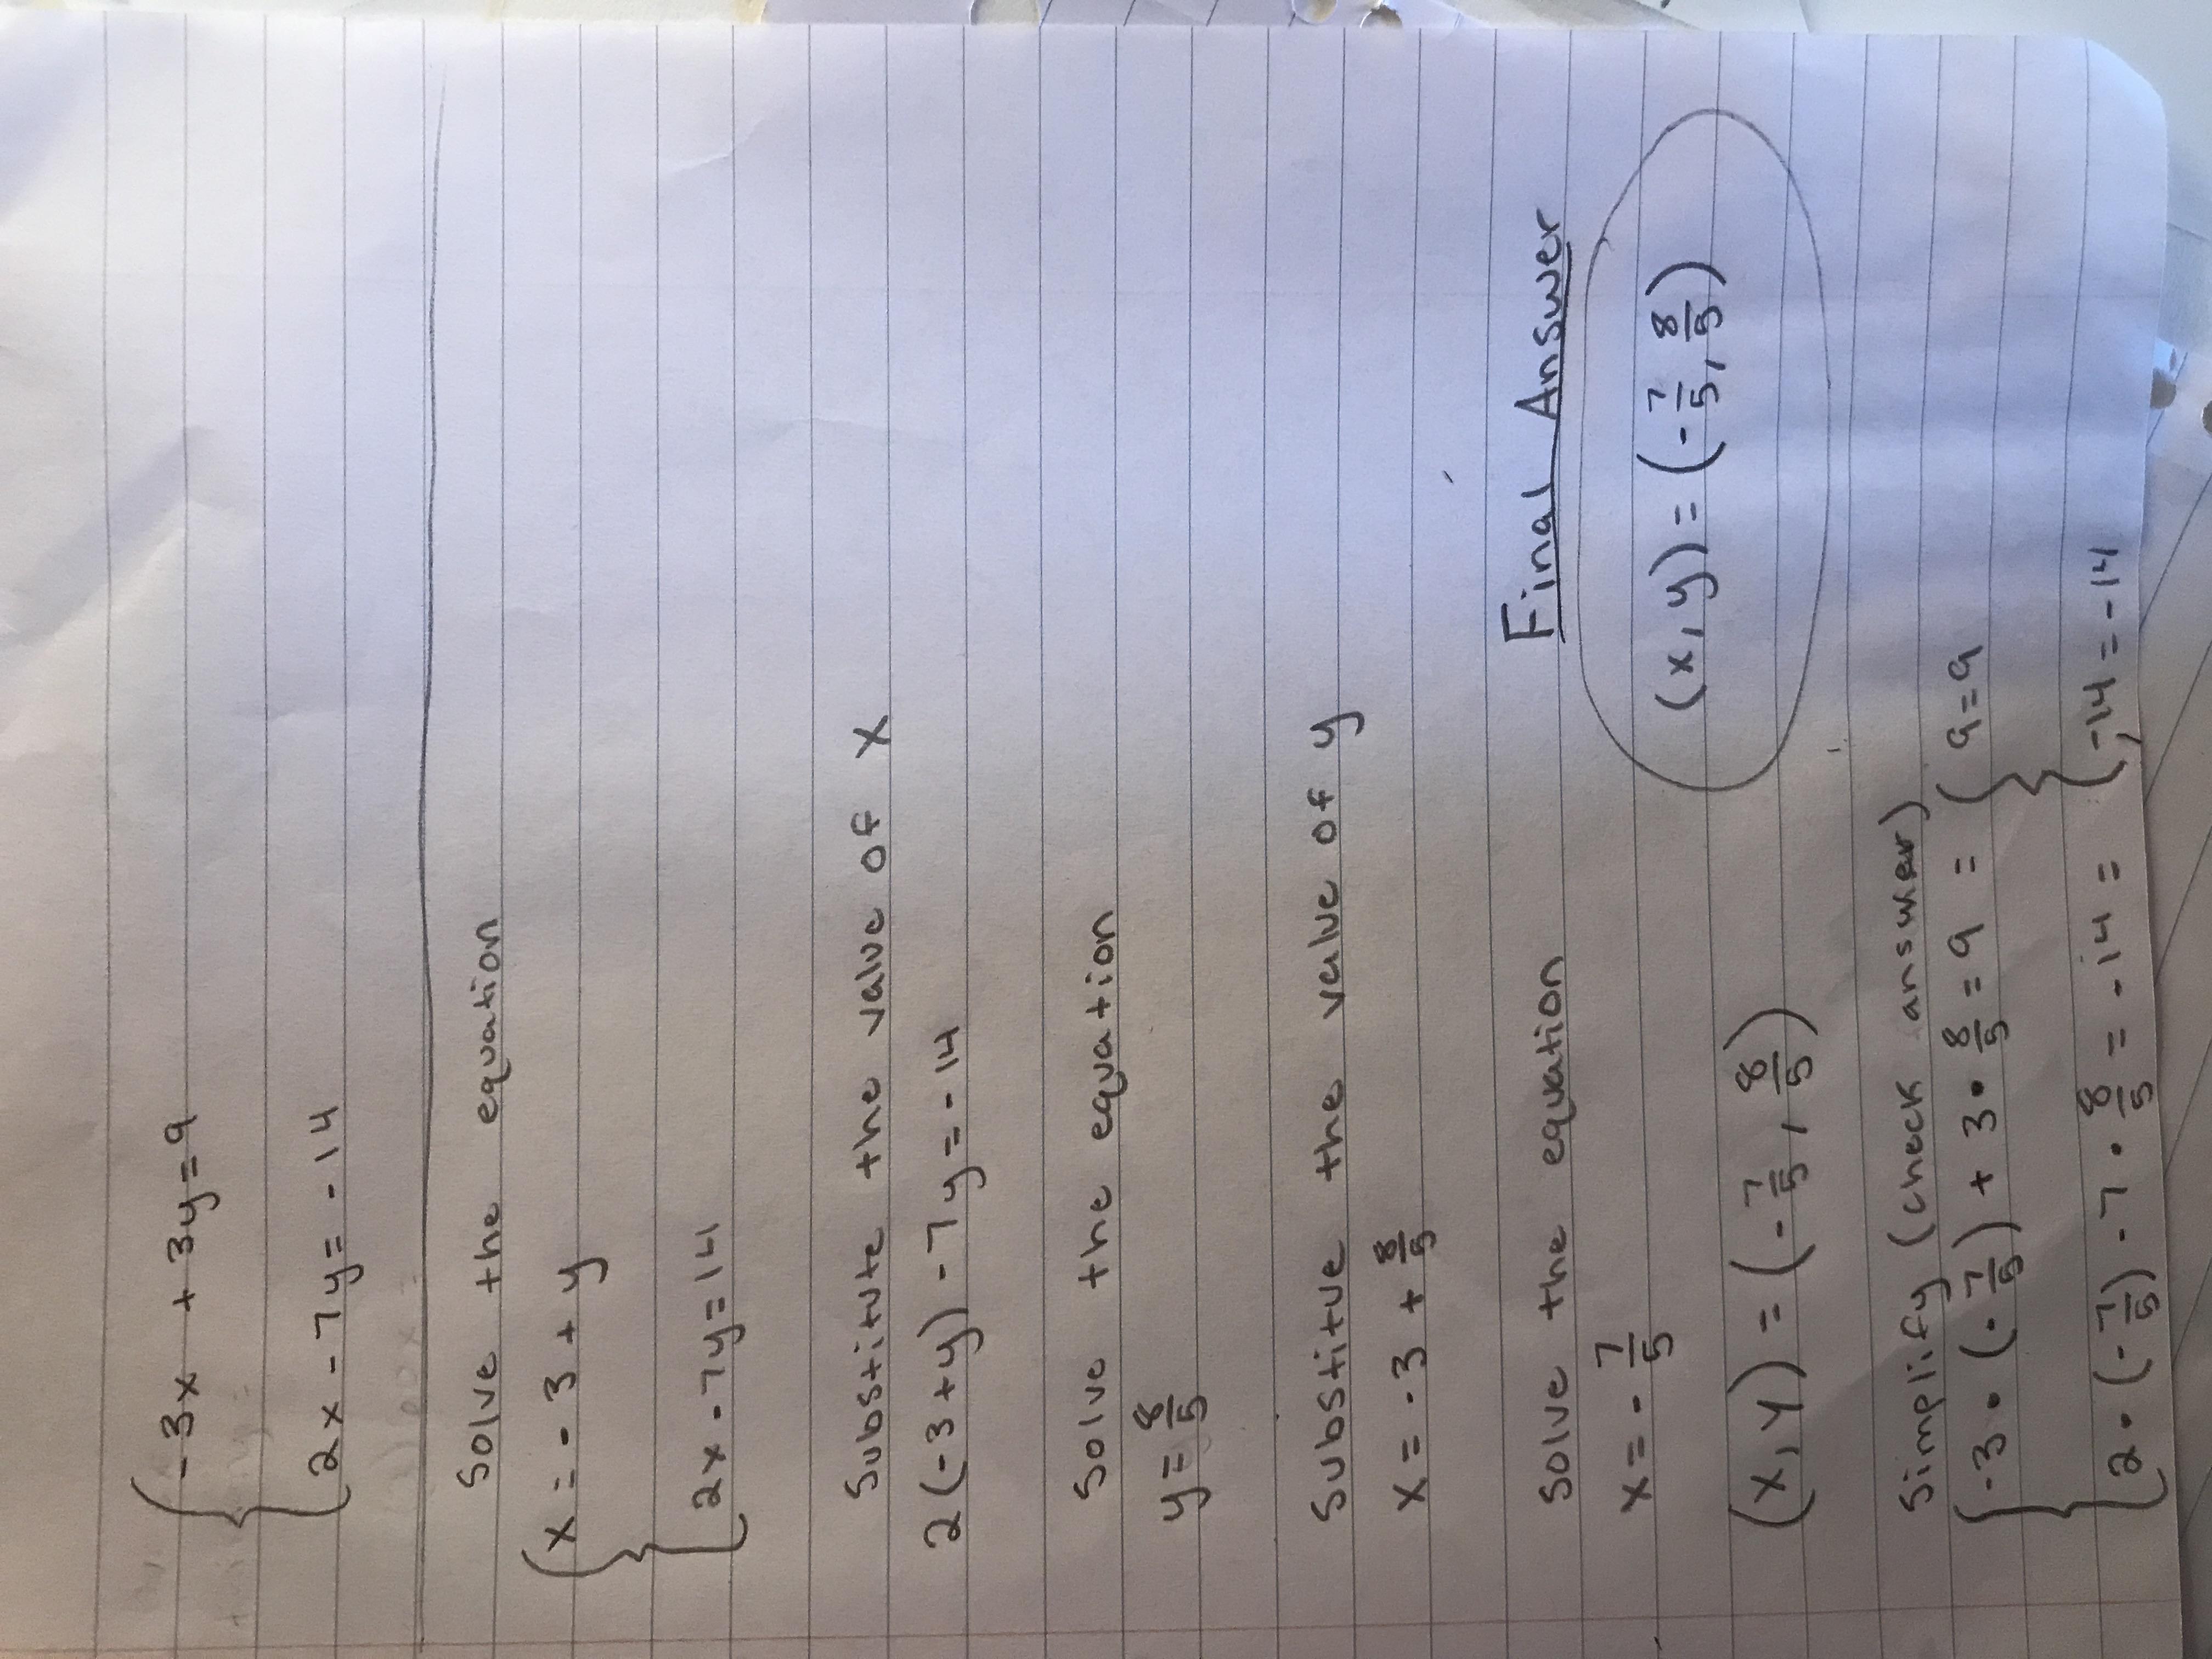 -3x + 3y=9
2x - 7y= -14
Solve the equation
x = -3 + y
2x - 7y=14
Substitute the value of x
2(-3+y) - 7y = -14
Solve the equation
y= 8/5
Substitue the value of y
x = -3 + 8/5
Solve the equation
x = - 7/5
(x, y) = (- 7/5, 8/5)
Final Answer
(x, y) = (- 7/5, 8/5)
Simplify (check answer)
-3 • (- 7/5) + 3 • 8/5 = 9 = 9=9
2 • (- 7/5) - 7 • 8/5 = -14 = -14 = -14